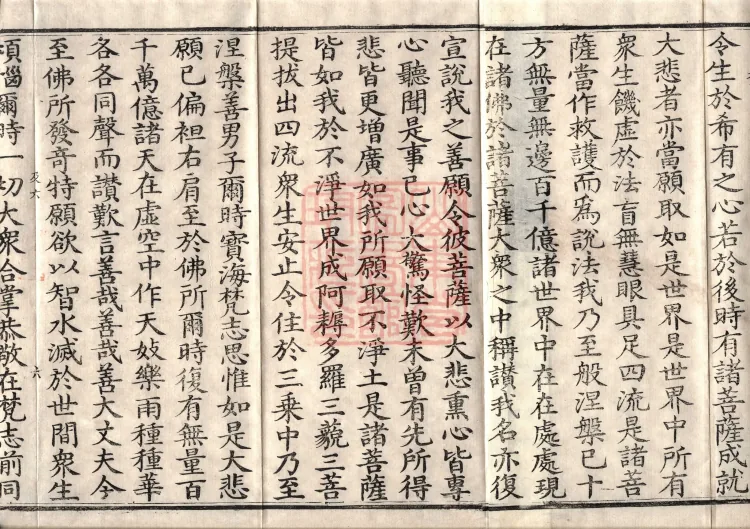 令生於希有之心若於後時有諸菩薩成就
大悲者亦當願取如是世界是世界中所有
衆生饑虛於法盲無慧眼具足四流是諸菩
薩當作救護而爲說法我乃至般涅槃已十
方無量無邊百千億諸世界中在在處處現
在諸佛於諸菩薩大衆之中稱讃我名亦復
宣說我之善願令彼菩薩以大悲熏心皆專
心聽聞是事已心大驚怪歎未曾有先所得
悲皆更增廣如我所願取不淨土是諸菩薩
皆如我於不淨世界成阿耨多羅三藐三菩
提拔出四流衆生安止令住於三乗中乃至
涅槃善男子爾時寶海梵志思惟如是大悲
願已偏袒右肩至於佛所爾時復有無量百
千萬億諸天在虛空中作天妓樂雨種種華
各各同聲而讃歎言善哉善哉善大丈夫今
至佛所發奇特願欲以智水滅於世間衆生
煩惱爾時一切大衆合掌恭敬在梵志前同
六